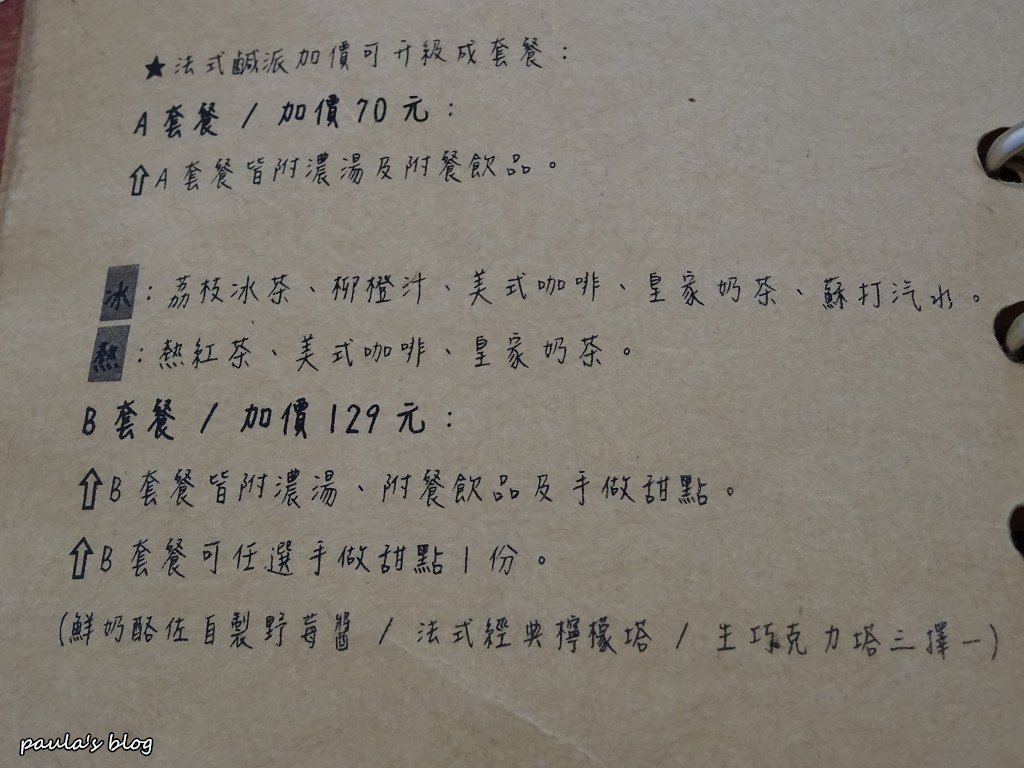 ★法式鹹派加價可升級成套餐：
A 套餐 / 加價 70 元：
⇧A 套餐皆附濃湯及附餐飲品。
冰：荔枝冰茶、柳橙汁、美式咖啡、皇家奶茶、蘇打汽水。
熱：熱紅茶、美式咖啡、皇家奶茶。
B 套餐 / 加價 129 元：
⇧B 套餐皆附濃湯、附餐飲品及手做甜點。
⇧B 套餐可任選手做甜點 1 份。
(鮮奶酪佐自製野莓醬 / 法式經典檸檬塔 / 生巧克力塔三擇一)
paula's blog